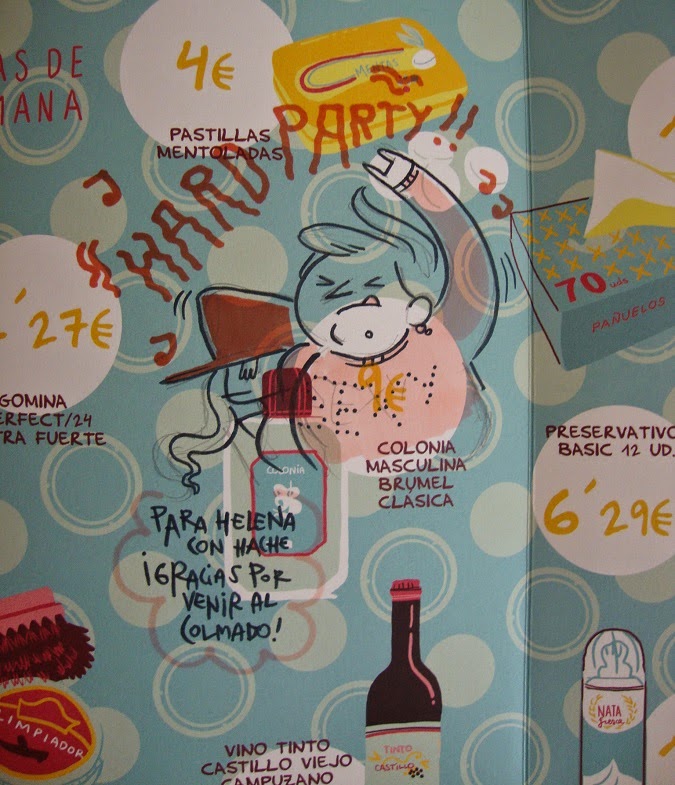 AS DE
MANA
4€
MENTAS
PASTILLAS
MENTOLADAS
HARD PARTY!!
70 uds.
PAÑUELOS
'27€
GOMINA
ERFECT/24
TRA FUERTE
9€
COLONIA
MASCULINA
BRUMEL
CLASICA
PRESERVATIVO
BASIC 12 UD.
6'29€
COLONIA
PARA HELENA
CON HACHE
¡GRACIAS POR
VENIR AL
COLMADO!
LIMPIADOR
TINTO
CASTILLO
NATA
fresca
VINO TINTO
CASTILLO VIEJO
CAMPUZANO